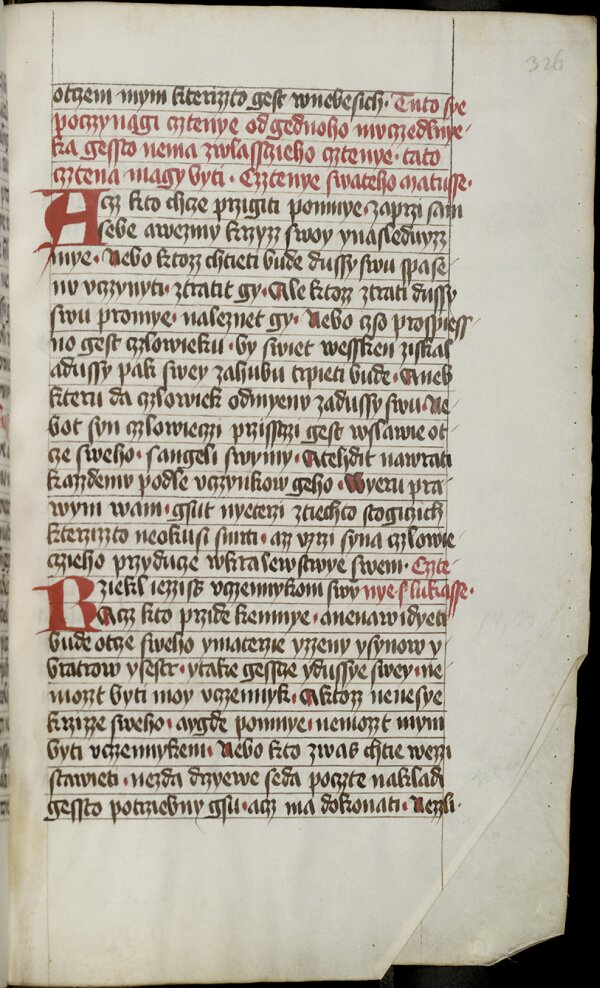 326
otczem mym kterizzto gest wnebesich · Tuto sye
poczynagi cztenye od gednoho muczedlnye
ka gessto nema zwlassczieho cztenye · tato
cztena magy byti · Czztenye swateho Matusse ·
Acz kto chcze przigiti pomnye · zaprzi sam
sebe awezmy krzyzz swoy ynasleduyzz
mnye · Nebo ktozz chtieti bude dussy swu spase
nu vczynyti · ztratit gy · Ale ktozz ztrati dussy
swu promye · naleznet gy · Nebo czso prospiess
no gest czlowieku · by swiet wessken ziskal
adussy pak swey zahubu trpieti bude · Aneb
kteru da czlowiek odmyenu zadussy swu · Ne
bot syn czlowieczi przisstzi gest wslawie ot
cze sweho · sangeli swymy · Atehdit nawrati
kazzdemy podle vczynkow geho · Wyeru pra
wym wam · gsut nyeterzi ztiechto stogiczich
kterzizzto neokusi smrti · azz vzrzi syna czlowie
czieho przyducze wkralewstwye swem · Czte
Rziekl iezziss vczennykom swy nye s lukasse ·
Acz kto przide kemnye · anenawidyeti
bude otcze sweho ymaterzie yzzeny ysynow y
bratrow ysestr · ytake gesscze ydussye swey · ne
mozzt byti moy vczennyk · Aktozz nenesye
krzizze sweho · aygde pomnye · nemozzt mym
byti vczennykem · Nebo kto zwas chtie wezzi
stawieti · nezda drzyewe seda poczte nakladi
gessto potrziebny gsu · acz ma dokonati · Nezzli